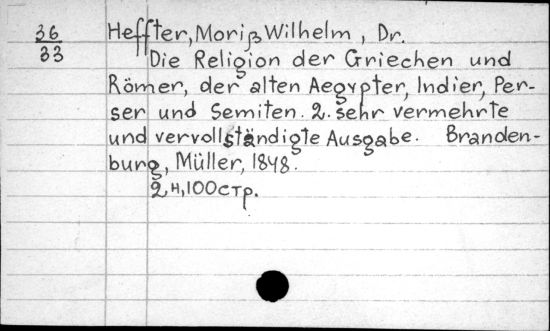 36
33
Heffter, Moriß Wilhelm, Dr.
Die Religion der Griechen und
Römer, der alten Aegypter, Indier, Per-
ser und Semiten. 2. sehr vermehrte
und vervollständigte Ausgabe. Branden-
burg, Müller, 1848.
2 н, 100 стр.